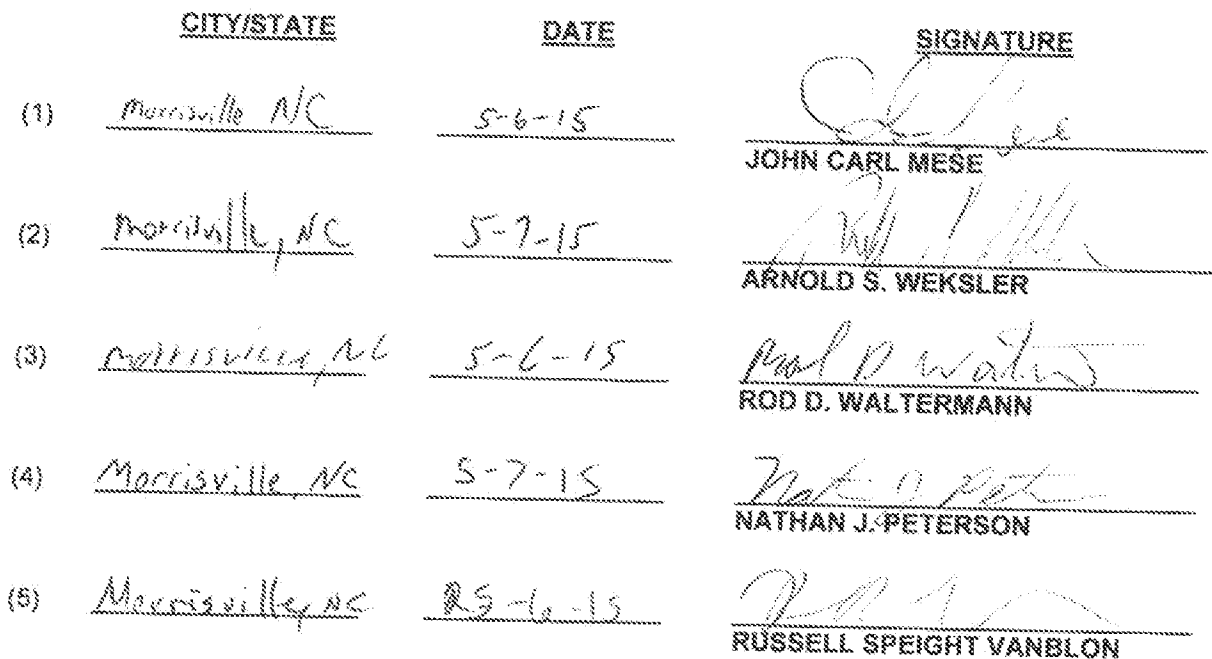 CITY/STATE DATE SIGNATURE
(1) Morrisville NC 5-6-15
JOHN CARL MESE
(2) Morrisville, NC 5-7-15
ARNOLD S. WEKSLER
(3) Morrisville, NC 5-6-15
ROD D. WALTERMANN
(4) Morrisville NC 5-7-15
NATHAN J. PETERSON
(5) Morrisville, NC 5-6-15
RUSSELL SPEIGHT VANBLON